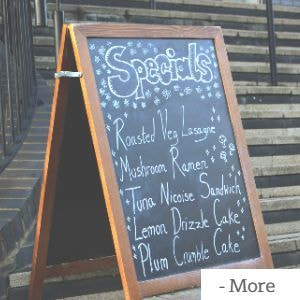 Specials
Roasted Veg Lasagne
Mushroom Ramen
Tuna Nicoise Sandwich
Lemon Drizzle Cake
Plum Crumble Cake
- More